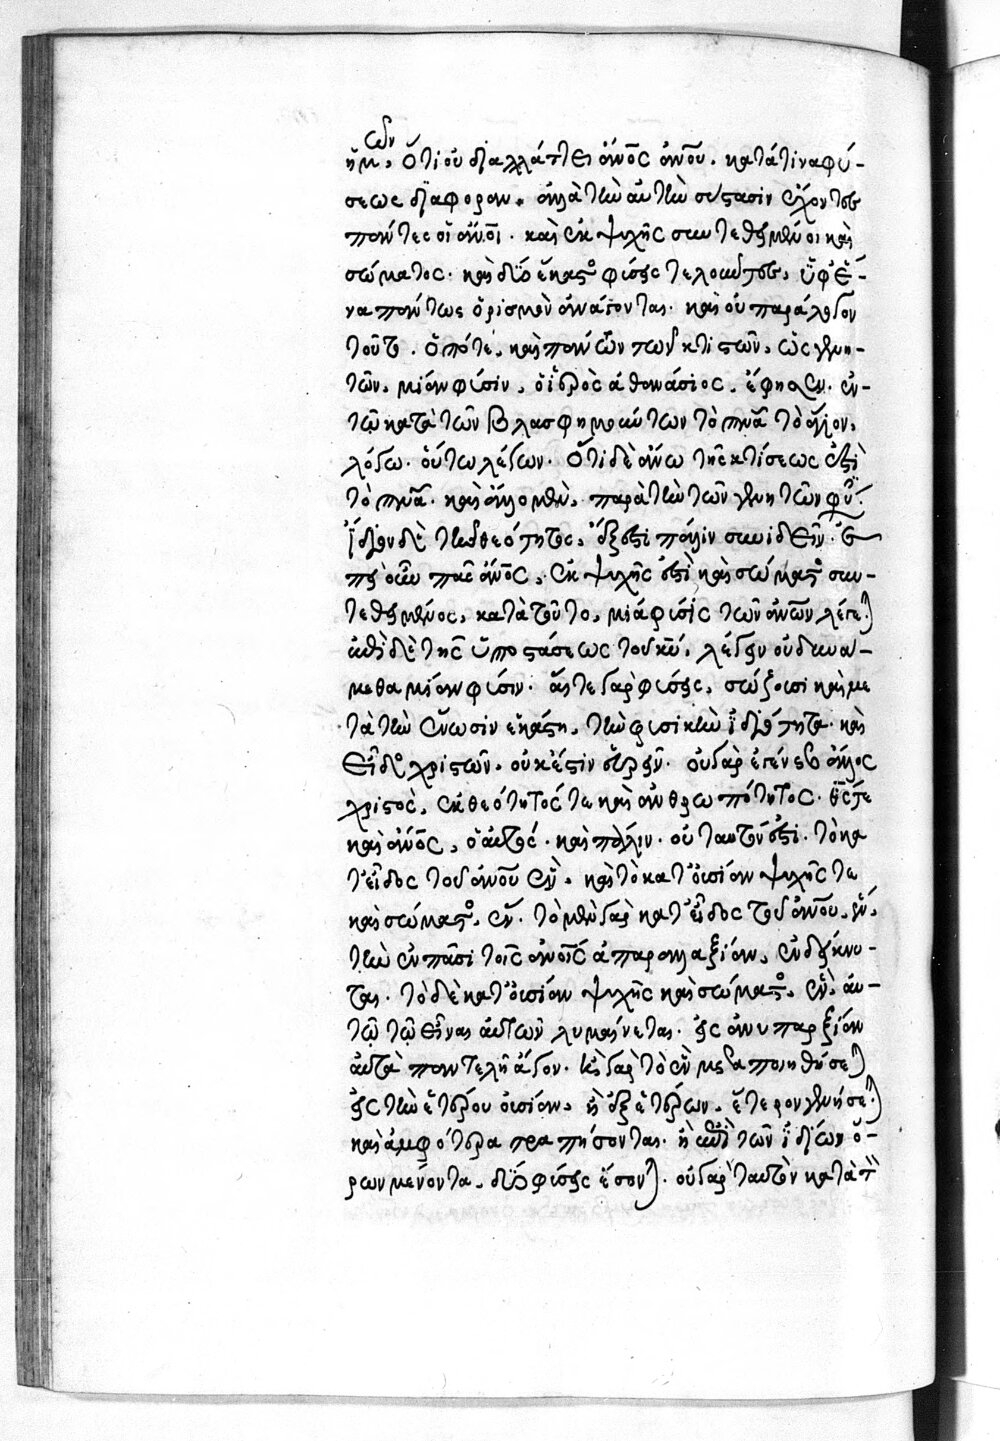 ῶν
ἡμ, ὅτι οὐ διαλλάττει ἄνος ἀνου. κατά τινα φύ-
σεως διαφοράν. ἀλλὰ τὴν αὐτὴν σύστασιν ἔχοντες
πάντες οἱ ἄνοι. καὶ ἐκ ψυχῆς συντεθειμένοι καὶ
σώματος. καὶ δύο ἑκάστου φύσεις τελοῦντες, ὑφ' ἕ-
να πάντως ὁρισμὸν ἀνάγονται. καὶ οὐ παράδοξον
τοῦτο. ὁπότε, καὶ πάντων τῶν κτιστῶν, ὡς γενη-
τῶν, μίαν φύσιν, ὁ ἱερὸς ἀθανάσιος, ἔφησεν. ἐν
τῶ κατὰ τῶν βλασφημούντων τὸ πνα τὸ ἅγιον,
λόγω. οὕτω λέγων. ὅτι δὲ ἄνω τῆς κτίσεως ἐστὶ
τὸ πνα. καὶ ἄλλο μὲν, παρὰ τὴν τῶν γενητῶν φύ.
ἴδιον δὲ τῆς θεότητος, ἔξεστι πάλιν συνιδεῖν.
πᾶς ἄνος, ἐκ ψυχῆς ἐστὶ καὶ σώματος συν-
τεθειμένος, κατὰ τοῦτο, μία φύσις τῶν ἀνων λέγεται
ἐπὶ δὲ τῆς ὑποστάσεως τοῦ κυ, λέγειν οὐ δυνά-
μεθα μίαν φύσιν. αἵ τε γὰρ φύσεις, σώζουσι καὶ με
τὰ τὴν ἕνωσιν ἑκάστη, τὴν φυσικὴν ἰδιότητα. καὶ
εἶδος χριστῶν, οὐκ ἔστιν εὑρεῖν. οὐ γὰρ ἐγένετο ἄλλος
χριστὸς, ἐκ θεότητός τε καὶ ἀνθρωπότητος. θς τε
καὶ ἄνος, ὁ αὐτός. καὶ πάλιν. οὐ ταυτόν ἐστι. τὸ κα
τ' εἶδος τοῦ ἀνου ἓν. καὶ τὸ κατ' οὐσίαν ψυχῆς τε
καὶ σώματος, ἕν. τὸ μὲν γὰρ κατ' εἶδος τοῦ ἀνου, ἓν,
τὴν ἐν πᾶσι τοῖς ἀνοις ἀπαραλλαξίαν, ἐνδείκνυ-
ται. τὸ δὲ κατ' οὐσίαν ψυχῆς καὶ σώματος, ἓν, αὐ-
τῶ τῶ εἶναι αὐτῶν λυμαίνεται. εἰς ἀνυπαρξίαν
αὐτὰ παντελῆ ἄγον. καὶ γὰρ τὸ ἓν μεταποιηθήσεται
εἰς τὴν ἑτέρου οὐσίαν, ἢ ἐξ ἑτέρων, ἕτερον γενήσεται
καὶ ἀμφότερα τραπήσονται. ἢ ἐπὶ τῶν ἰδίων ὅ-
ρων μένοντα, δύο φύσεις ἔσονται. οὐ γὰρ ταυτὸν κατὰ τὴν